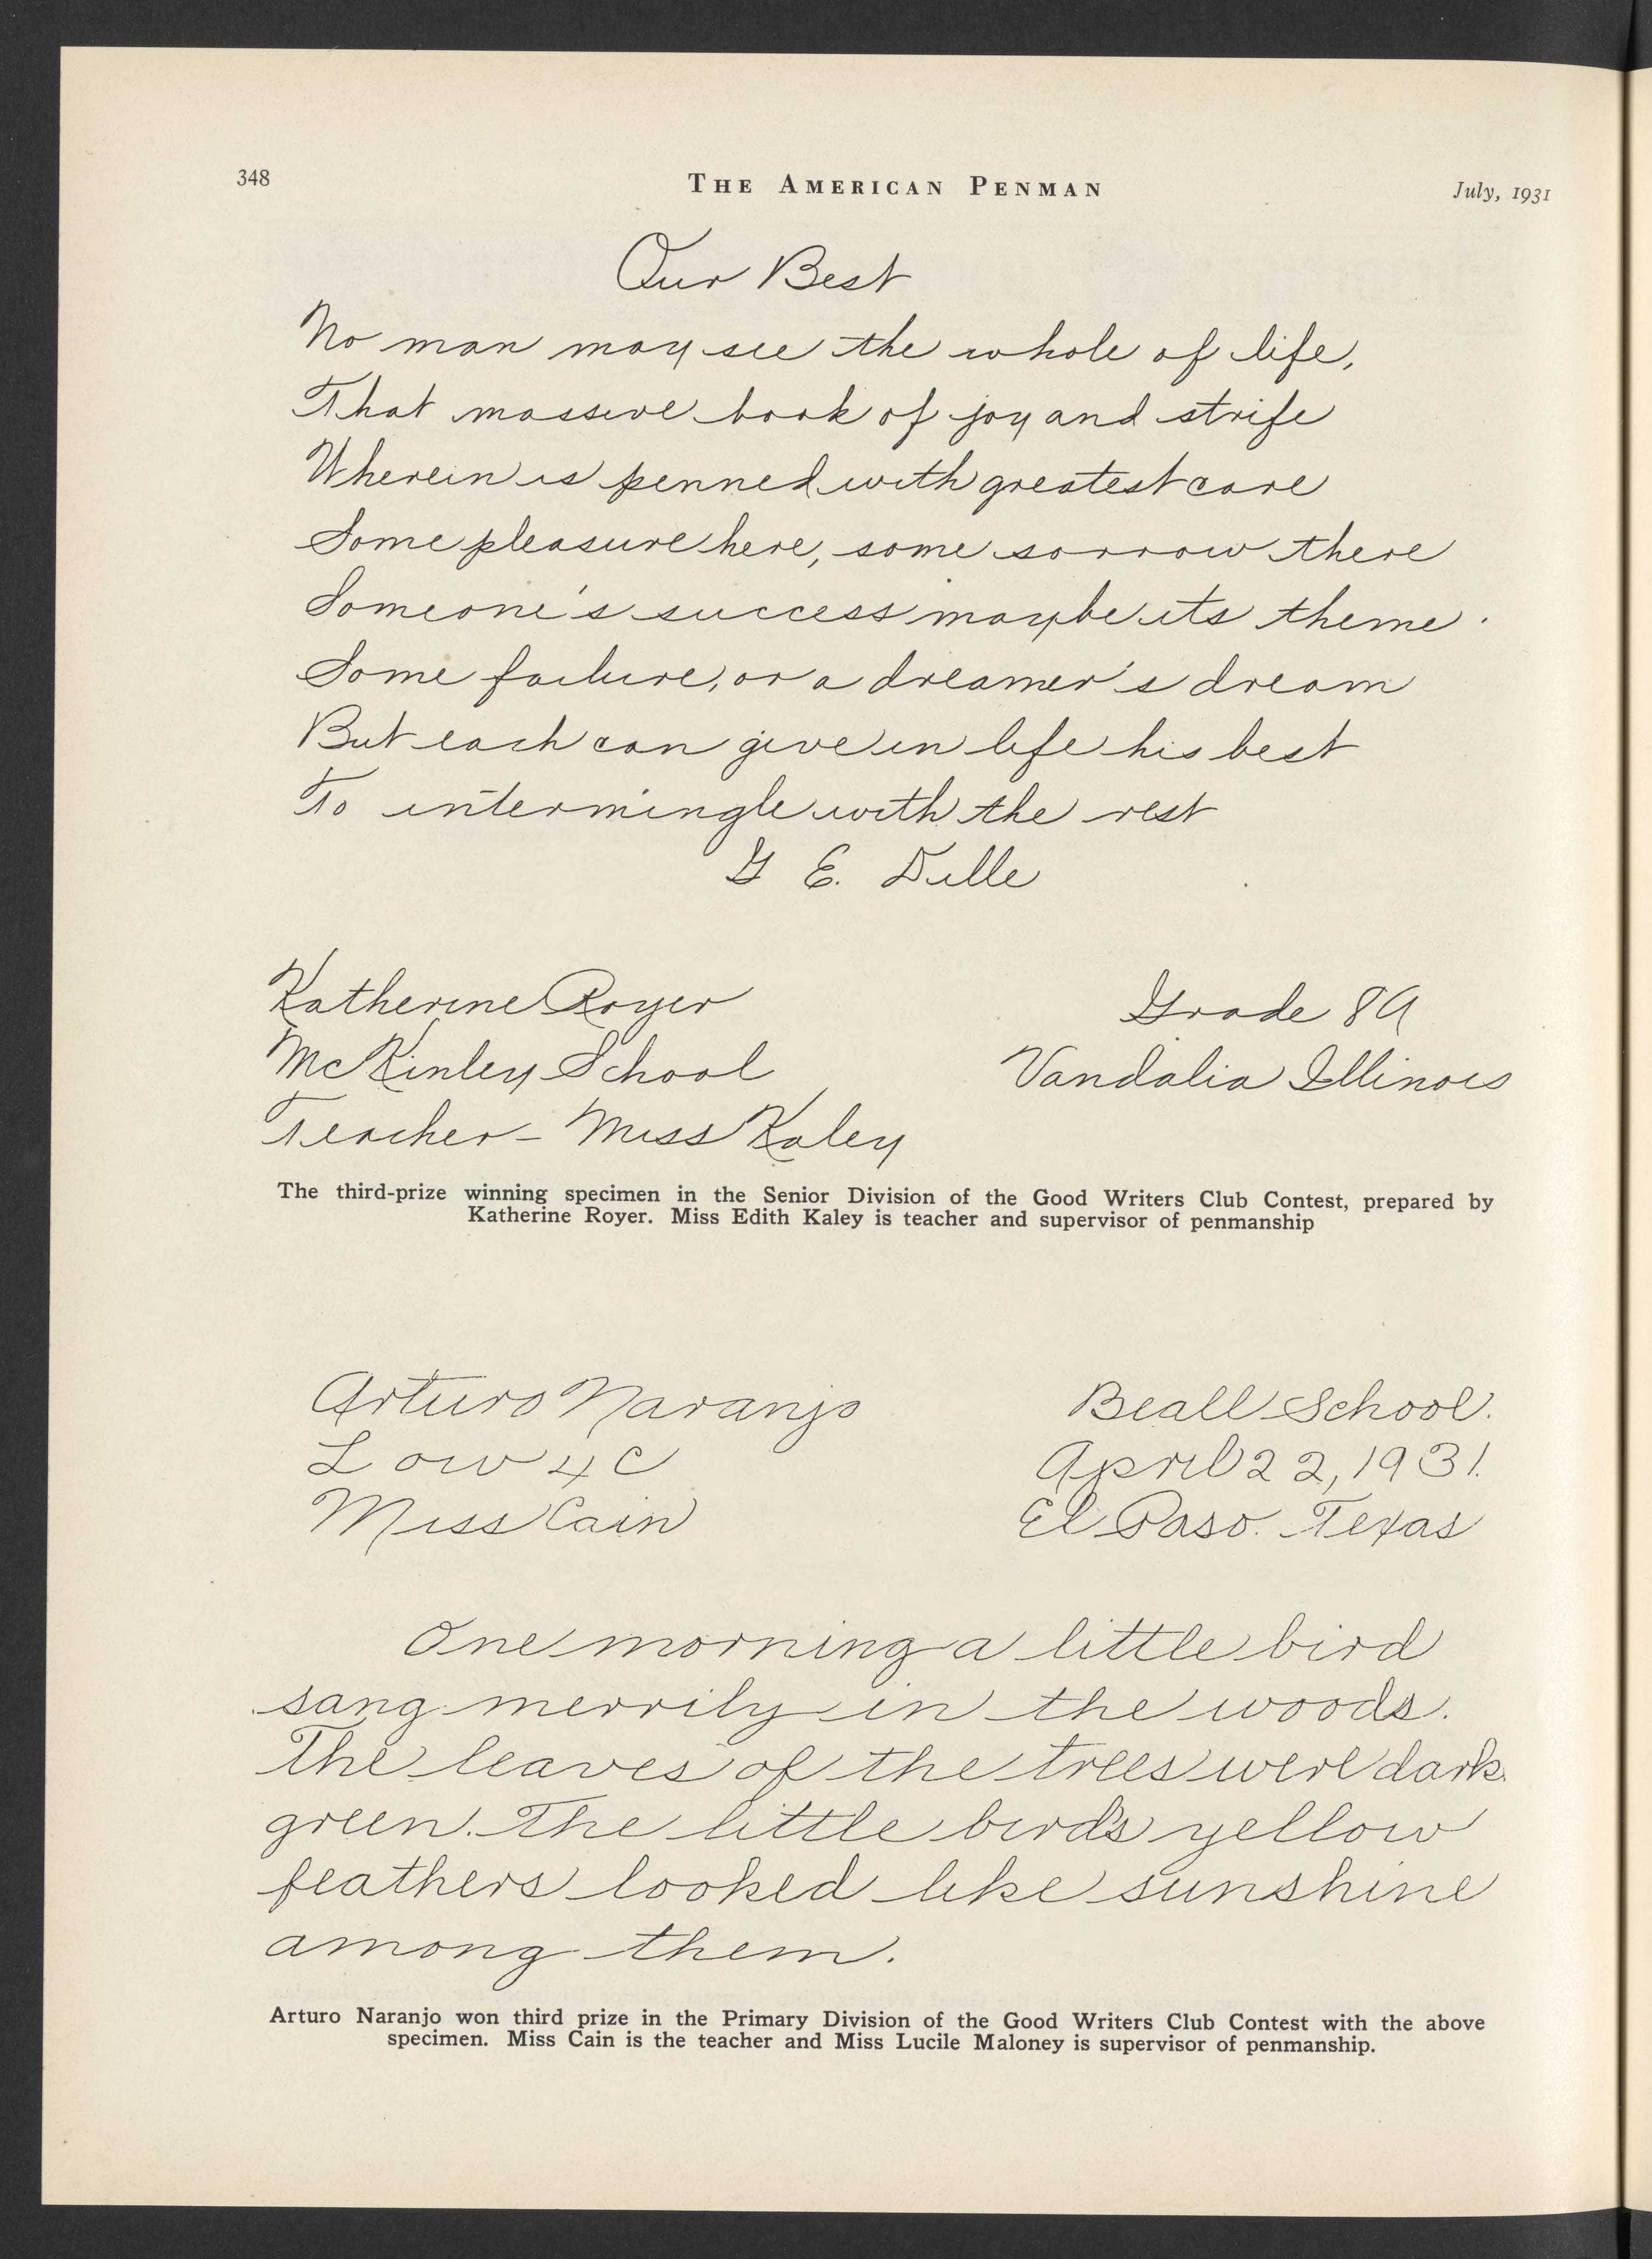 348
THE AMERICAN PENMAN
July, 1931
Our Best
No man may see the whole of life,
That massive book of joy and strife
Wherein is penned with greatest care
Some pleasure here, some sorrow there
Someone's success maybe its theme.
Some failure, or a dreamer's dream
But each can give in life his best
To intermingle with the rest
G E. Dille
Katherine Royer
Grade 8A
McKinley School
Vandalia Illinois
Teacher - Miss Kaley
The third-prize winning specimen in the Senior Division of the Good Writers Club Contest, prepared by
Katherine Royer. Miss Edith Kaley is teacher and supervisor of penmanship
Arturo Naranjo
Beall School.
Low 4 C
April 22, 1931.
Miss Cain
El Paso. Texas
One morning a little bird
sang merrily in the woods.
The leaves of the trees were dark
green. The little bird's yellow
feathers looked like sunshine
among them.
Arturo Naranjo won third prize in the Primary Division of the Good Writers Club Contest with the above
specimen. Miss Cain is the teacher and Miss Lucile Maloney is supervisor of penmanship.